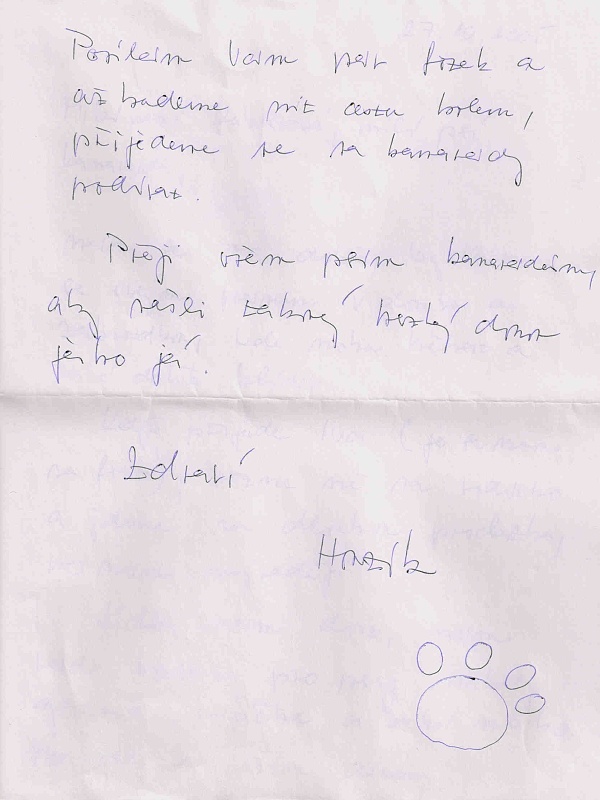 Posílám Vám pár fotek a
až budeme mít cestu kolem,
přijedeme se na kamarády
podívat.
Přeji všem psím kamarádům,
aby našli takový hezký domov
jako já.
Zdraví
Honzík